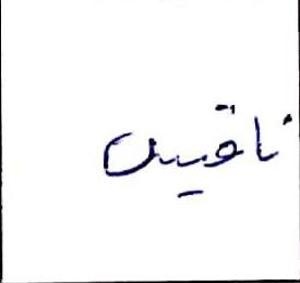 ناقيس